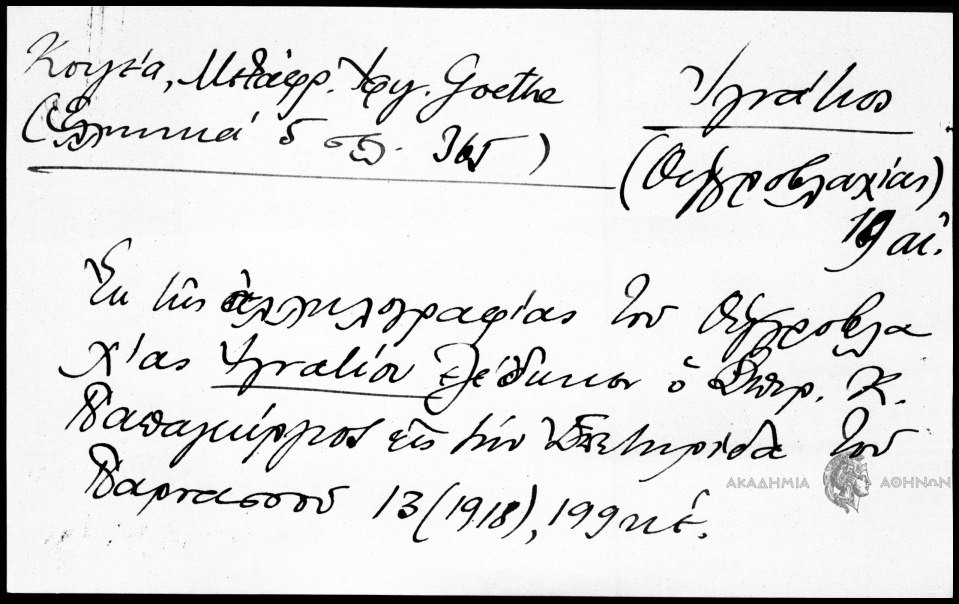 Κουγέα, Μετάφρ. Ἰφιγ. Goethe
(Ἑλληνικά 5 σελ. 365)
Ἰγνάτιος
(Οὑγγροβλαχίας)
19 αἰ.
Ἐκ τῆς ἀλληλογραφίας τοῦ Οὑγγροβλα
χίας Ἰγνατίου ἐξέδωκεν ὁ Σπυρ. Κ.
Παπαγεώργιος εἰς τὴν Ἐπετηρίδα τοῦ
Παρνασσοῦ 13 (1918), 199 κἑ.
ΑΚΑΔΗΜΙΑ ΑΘΗΝΩΝ